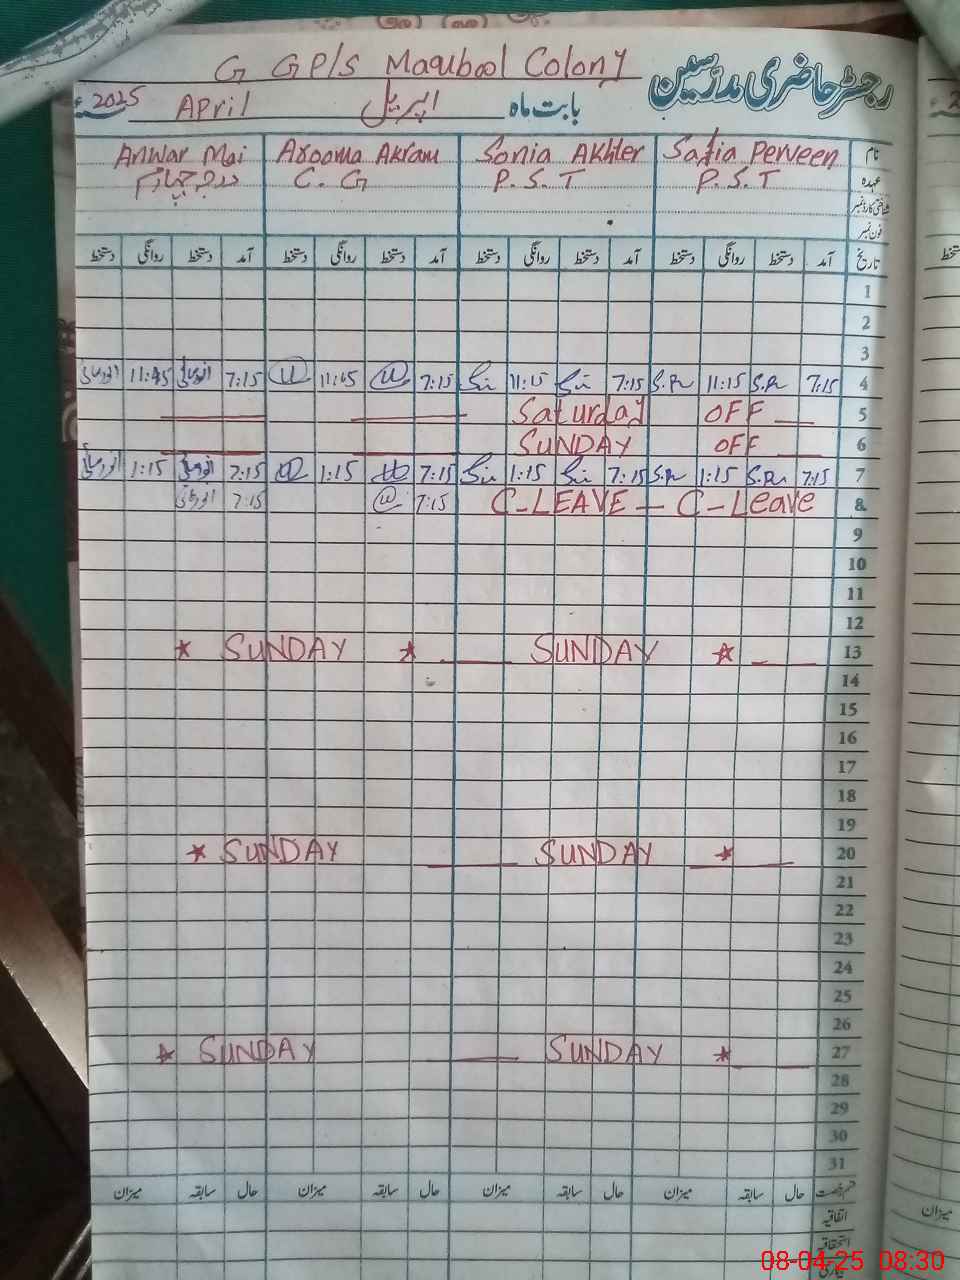 G GP/S Maqubool Colony
رجسٹر حاضری مدرسین
بابت ماہ اپریل April 2025ء
نام Safia Perveen Sonia Akhter Arooma Akram Anwar Mai
عہدہ P.S.T P.S.T C.G درجہ چہارم
شناختی کارڈ نمبر
فون نمبر
تاریخ آمد دستخط روانگی دستخط آمد دستخط روانگی دستخط آمد دستخط روانگی دستخط آمد دستخط روانگی دستخط
1
2
3
4 7:15 S.Pr 11:15 S.Pr 7:15 11:15 7:15 11:45 7:15 11:45
5 Saturday OFF
6 SUNDAY OFF
7 7:15 S.Pr 1:15 S.Pr 7:15 1:15 7:15 1:15 7:15 1:15
8 C-LEAVE — C-Leave 7:15 7:15
9
10
11
12
13 SUNDAY SUNDAY
14
15
16
17
18
19
20 SUNDAY SUNDAY
21
22
23
24
25
26
27 SUNDAY SUNDAY
28
29
30
31
قسم رخصت حال سابقہ میزان حال سابقہ میزان حال سابقہ میزان حال سابقہ میزان
اتفاقیہ
استحقاقیہ
بیماری
میزان
08-04-25 08:30